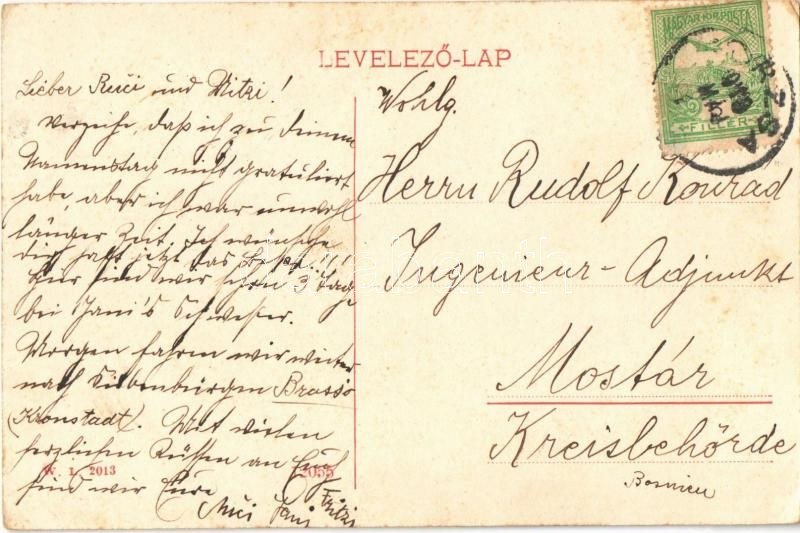 LEVELEZŐ-LAP
MAGYAR KIR. POSTA
FILLÉR
Lieber Ruci und Mitzi!
Verzeihe, daß ich zu deinem
Namenstag nicht gratuliert
habe, aber ich war unwohl
länger Zeit. Ich wünsche
dir halt jetzt das Beste!!!
Hier sind wir schon 3 Tage
bei Jani's Schwester.
Morgen fahren wir weiter
nach Siebenbürgen Brassó
(Kronstadt). Mit vielen
herzlichen Küssen an Euch
sind wir Eure
Mici Jani Fritzi
W. L. 2013
2055
Wohlg.
Herrn Rudolf Konrad
Ingenieur-Adjunkt
Mostár
Kreisbehörde
Bosnien